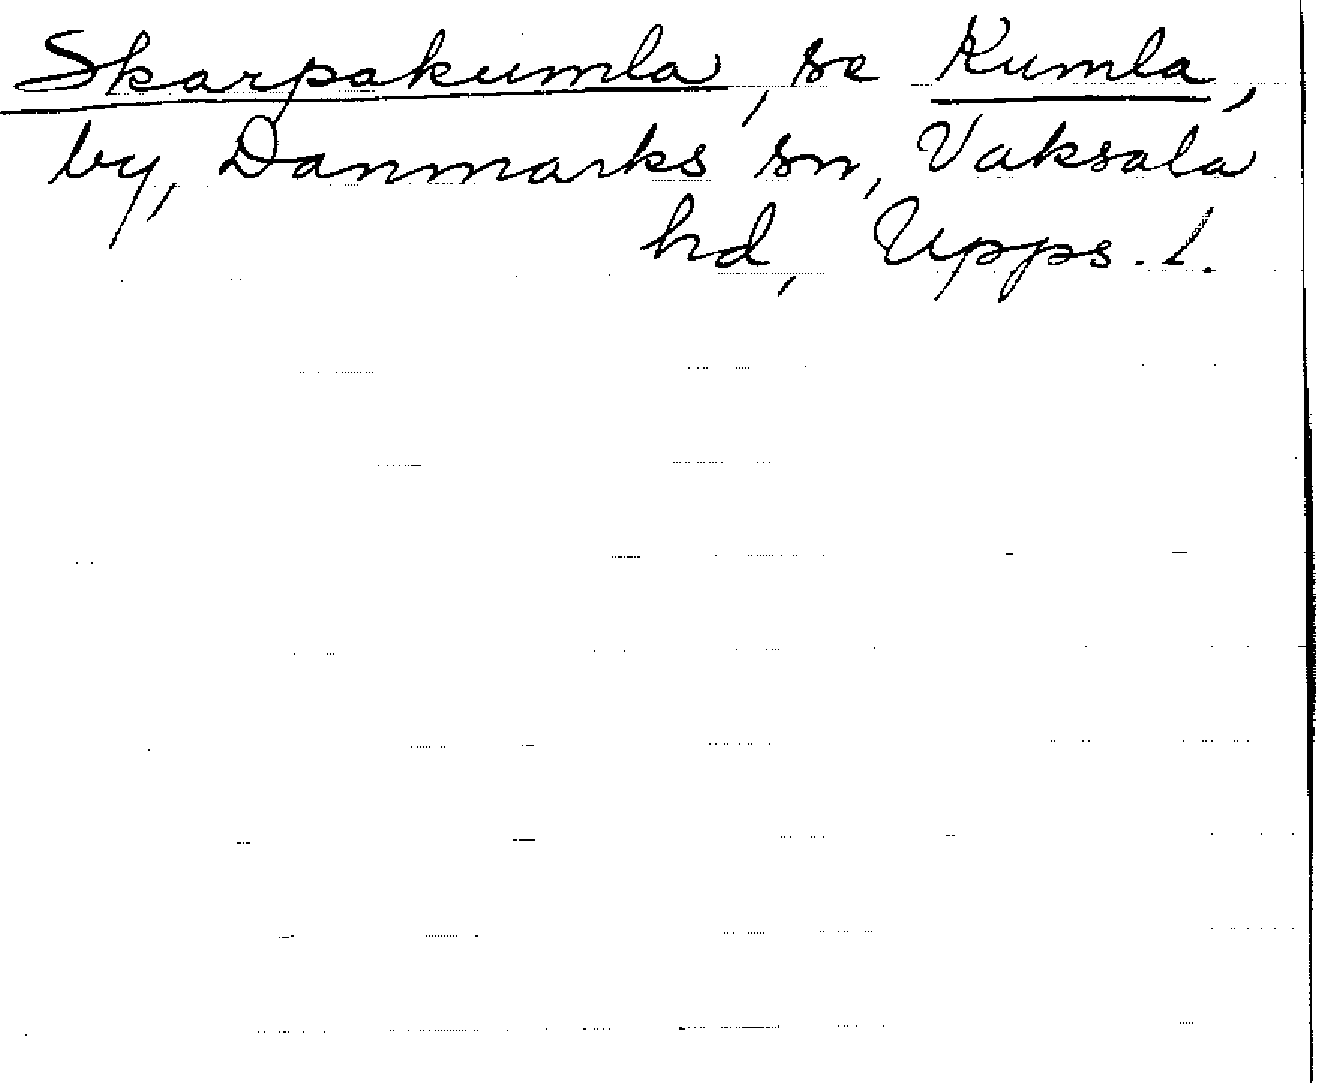 Skarpakumla, se Kumla,
by, Danmarks sn, Vaksala
hd, Upps. l.